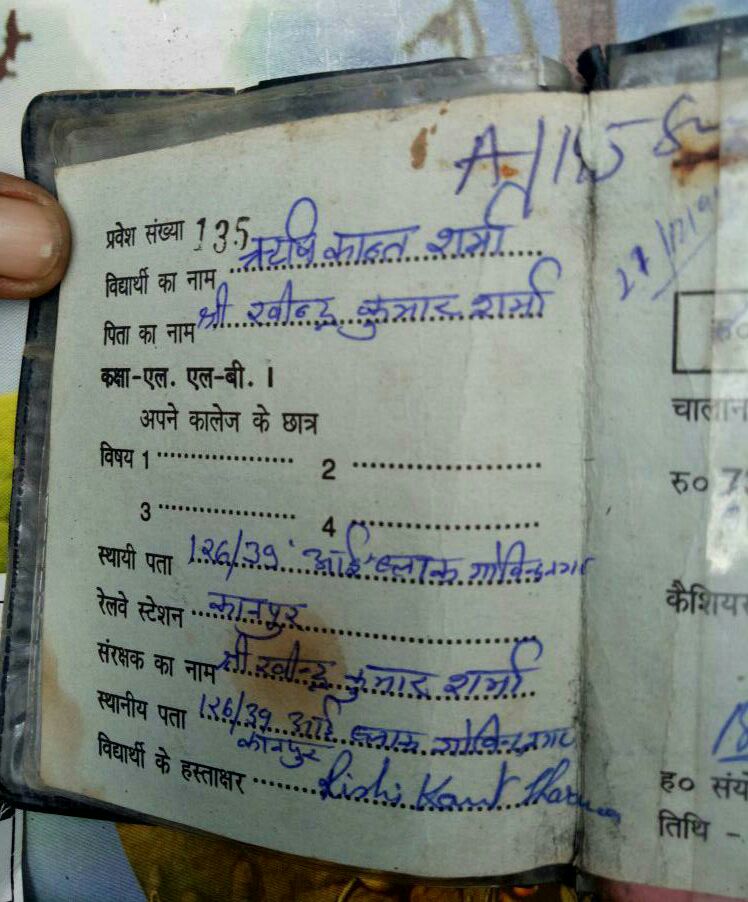 A/115
प्रवेश संख्या 135
विद्यार्थी का नाम ऋषि कान्त शर्मा
पिता का नाम श्री रवीन्द्र कुमार शर्मा
कक्षा-एल. एल-बी. I
अपने कालेज के छात्र
विषय 1 2
3 4
स्थायी पता 126/39 'आई' ब्लाक गोविन्दनगर
रेलवे स्टेशन कानपुर
संरक्षक का नाम श्री रवीन्द्र कुमार शर्मा
स्थानीय पता 126/39 आई ब्लाक गोविन्दनगर
कानपुर
विद्यार्थी के हस्ताक्षर Rishi Kant Sharma
चालान
रु०
कैशियर
ह०
तिथि -